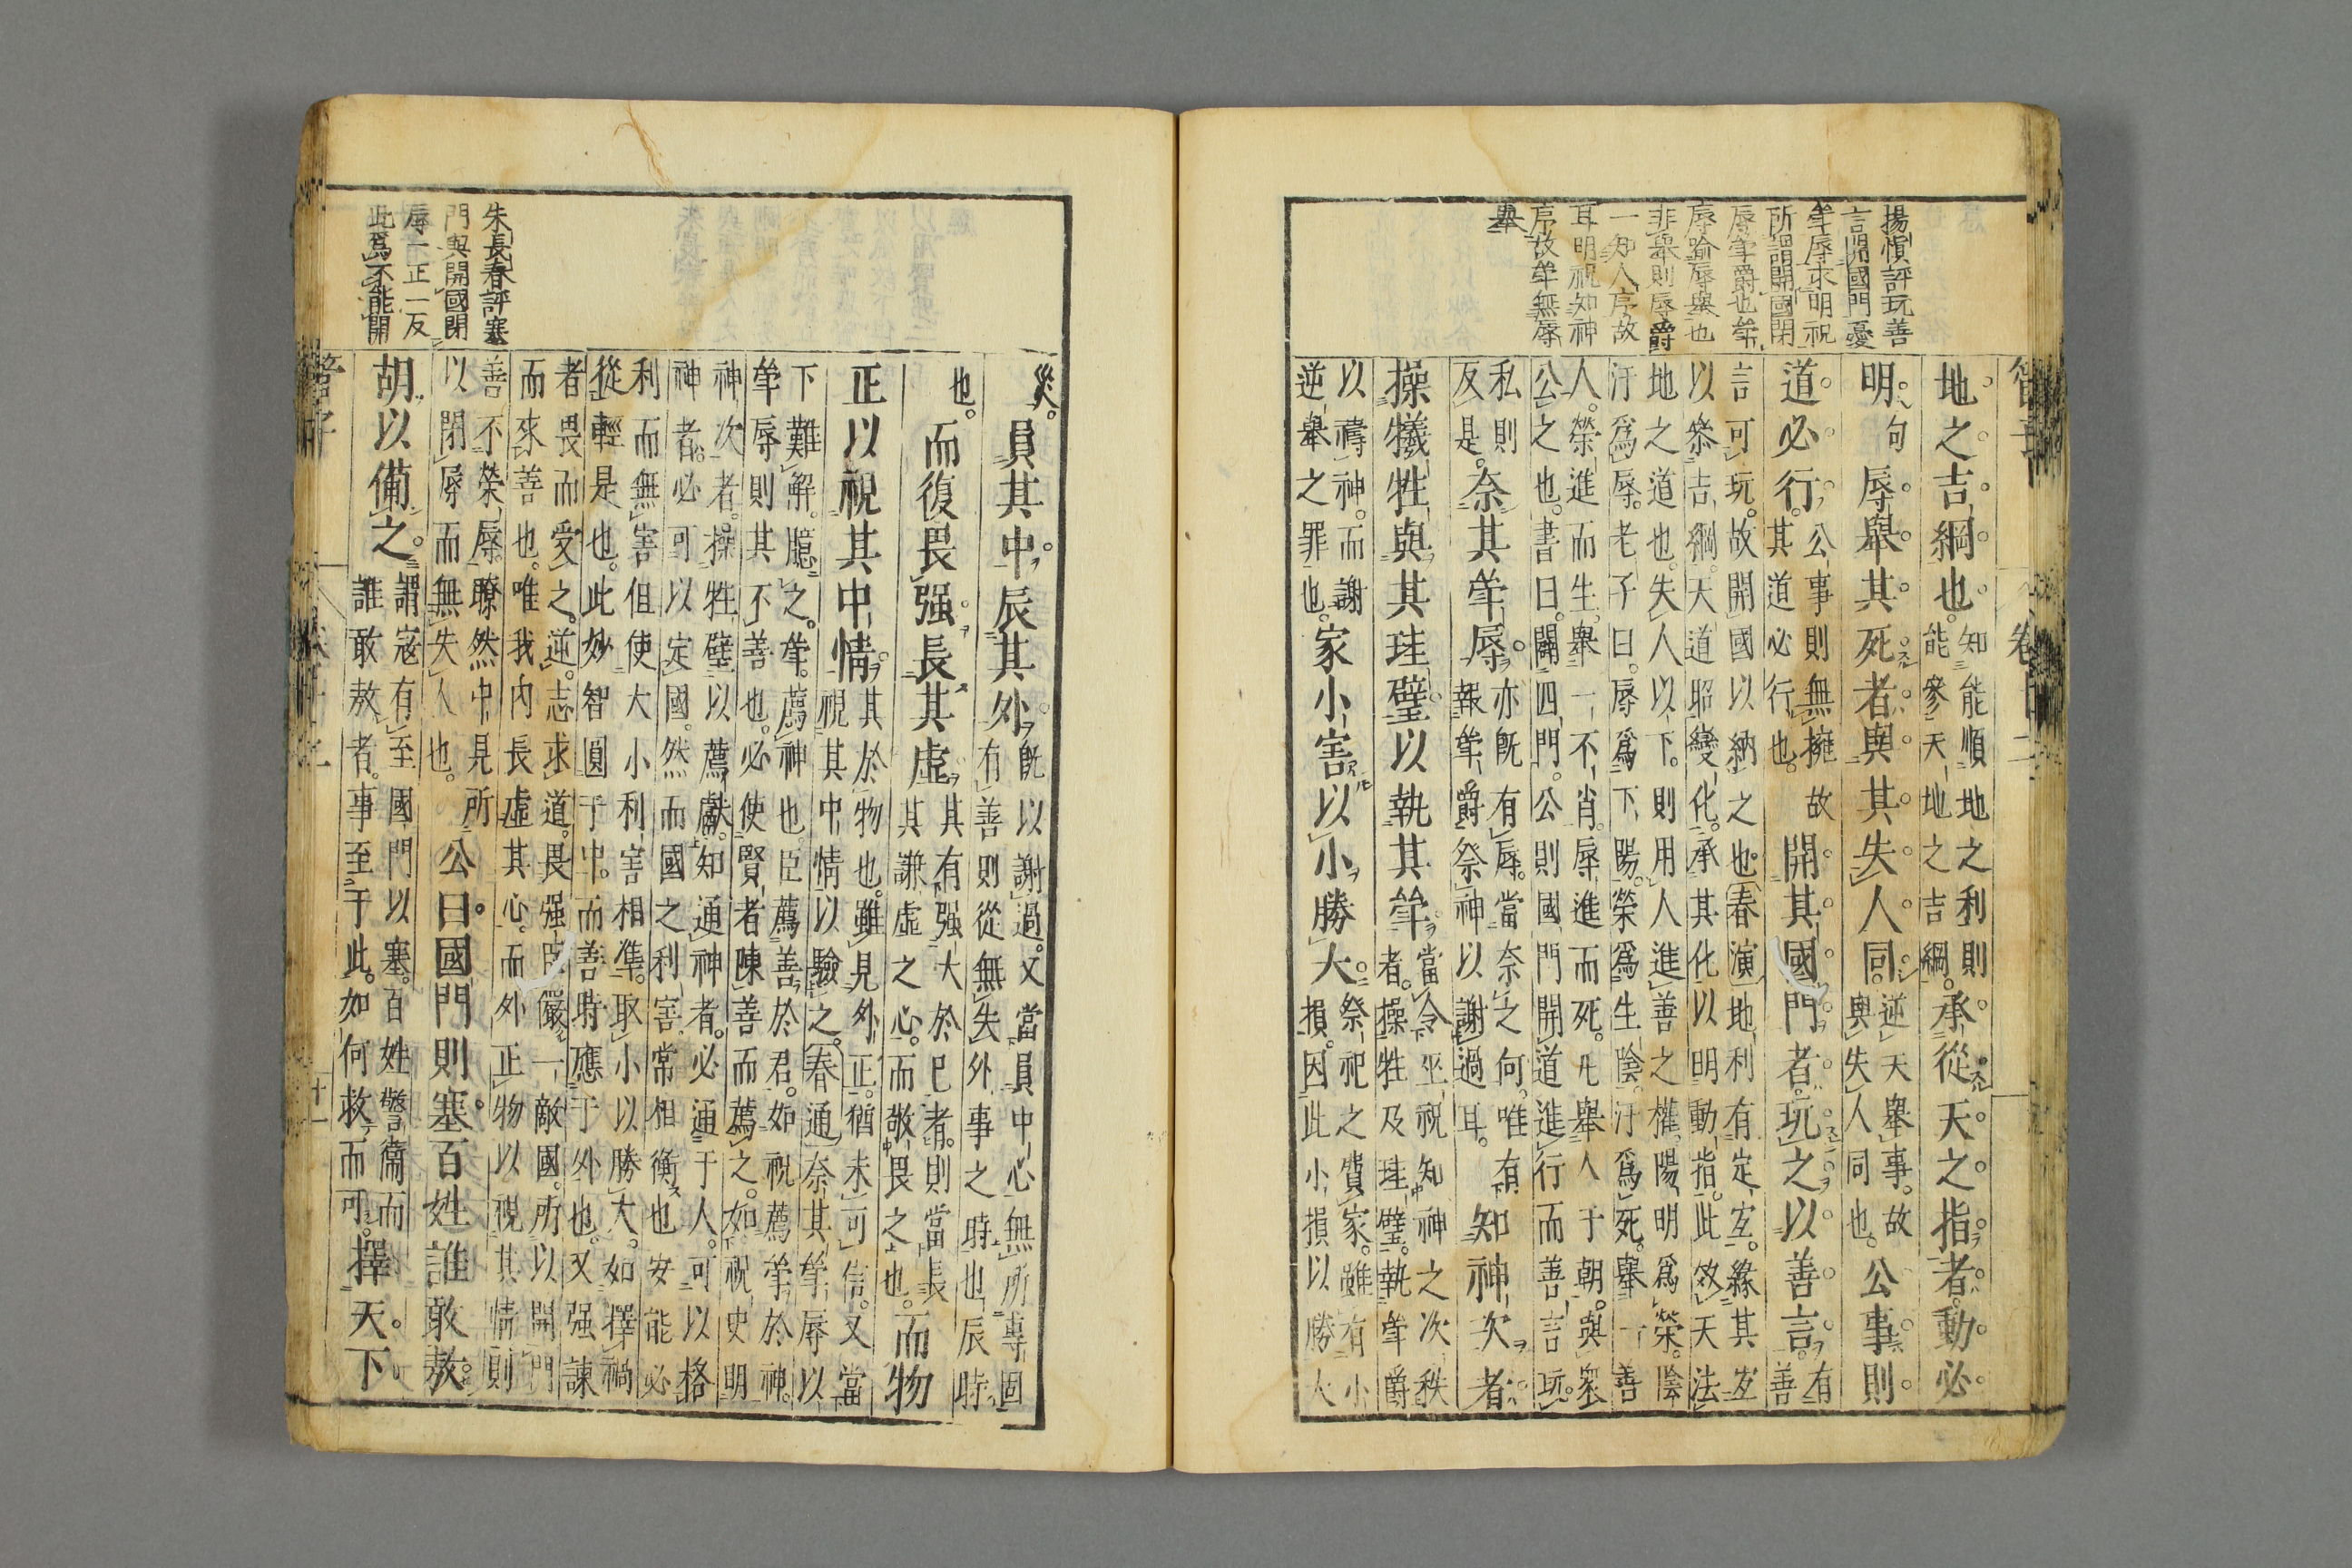 揚愼評玩善
言開國門憂
斝辱求明祝
所謂開國閉
辱斝爵也斝
辱踰辱舉也
非舉則辱爵
一知人序故
耳明祝知神
序故斝無辱
舉
地之吉綱也。知能順地之利則
能參天地之吉綱。承從天之指者。動必
明句辱舉其死者。與其失人同。逆天舉事。故
與失人同也。公事則
道必行。公事則無擁故
其道必行也。開其國門者。玩之以善言。有善
言可玩。故開國以納之也。春演地利有定宜。緣其宜
以叅吉綱。天道昭變化。承其化以明動指。此效天法
地之道也。失人以下。則用人進善之權。陽明爲榮。陰
汙爲辱。老子曰。辱爲下陽。榮爲生陰。汙爲死。舉一善
人。榮進而生。舉一不肖。辱進而死。凡舉人于朝。與衆
公之也。書曰。闢四門。公則國門開。道進行而善言玩。
私則
反是。奈其斝辱。亦旣有辱。當奈之何。唯有
報斝爵祭神以謝過耳。知神次者。
操犧牲與其珪璧。以執其斝。當令巫祝知神之次秩
者。操牲及珪璧。執斝爵
以禱神。而謝
逆舉之罪也。家小害。以小勝大。祭祀之費家。雖有小
損。因此小損以勝大
災。員其中。辰其外。旣以謝過。又當員中。心無所專固
有善則從無失外事之時也。辰時
也。而復畏强。長其虛。其有强大於已者。則當長
其謙虛之心。而敬畏之也。而物
正以視其中情。其於物也。雖見外正。猶未可信。又當
視其中情以驗之。春通奈其斝辱以
下難解。臆之。斝。薦神也。臣薦善於君。如祝薦斝於神。
斝辱則其不善也。必使賢者陳善而薦之。如祝史明
神次者。操牲璧以薦獻。知通神者。必通于人。可以格
神者。必可以定國。然而國之利害常相衡也。安能必
利而無害。但使大小利害相準。取小以勝大。如擇禍
從輕是也。此妙智圓于中。而善時應于外也。又强諫
者畏而受之。逆志求道。畏强時嚴一敵國。所以開門
而來善也。唯我内長虛其心。而外正物以視其情。則
善不榮辱。瞭然中見所
以閉辱而無失人也。公曰。國門則塞。百姓誰敢敖。
胡以備之。謂寇有至國門以塞。百姓警備而
誰敢敖者。事至于此。如何救而可。擇天下
朱長春評塞
門與開國閉
辱一正一反
此爲不能開